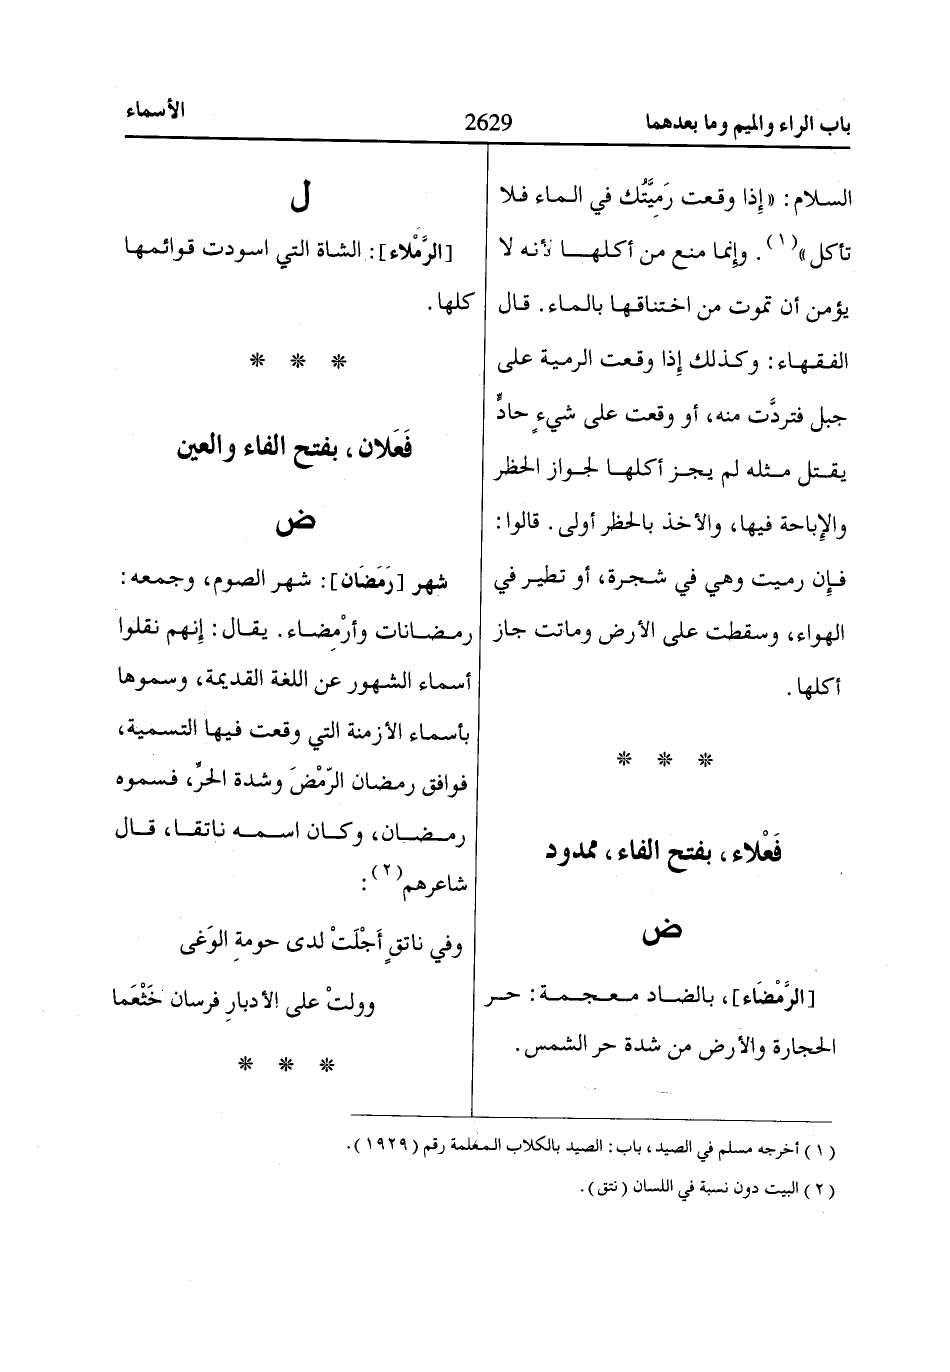 باب الراء والميم وما بعدهما
2629
الأسماء
السلام: «إِذا وقعت رَمِيَّتُك في الماء فلا
تأكل»(١). وإِنما منع من أكلها لأنه لا
يؤمن أن تموت من اختناقها بالماء. قال
الفقهاء: وكذلك إِذا وقعت الرمية على
جبل فتردَّت منه، أو وقعت على شيءٍ حادٍّ
يقتل مثله لم يجز أكلها لجواز الحظر
والإِباحة فيها، والأخذ بالحظر أولى. قالوا:
فإِن رميت وهي في شجرة، أو تطير في
الهواء، وسقطت على الأرض وماتت جاز
أكلها.
* * *
فَعْلاء، بفتح الفاء، ممدود
ض
[الرَّمْضَاء]، بالضاد معجمة: حر
الحجارة والأرض من شدة حر الشمس.
ل
[الرَّمْلاء]: الشاة التي اسودت قوائمها
كلها.
* * *
فَعَلان، بفتح الفاء والعين
ض
شهر [رَمَضَان]: شهر الصوم، وجمعه:
رمضانات وأرْمِضاء. يقال: إِنهم نقلوا
أسماء الشهور عن اللغة القديمة، وسموها
بأسماء الأزمنة التي وقعت فيها التسمية،
فوافق رمضان الرّمْضَ وشدة الحرِّ، فسموه
رمضان، وكان اسمه ناتقا، قال
شاعرهم(٢):
وفي ناتقٍ أَجْلَتْ لدى حومةِ الوَغى
وولتْ على الأدبارِ فرسان خَثْعَما
* * *
(١) أخرجه مسلم في الصيد، باب: الصيد بالكلاب المعلمة رقم (١٩٢٩).
(٢) البيت دون نسبة في اللسان (نتق).